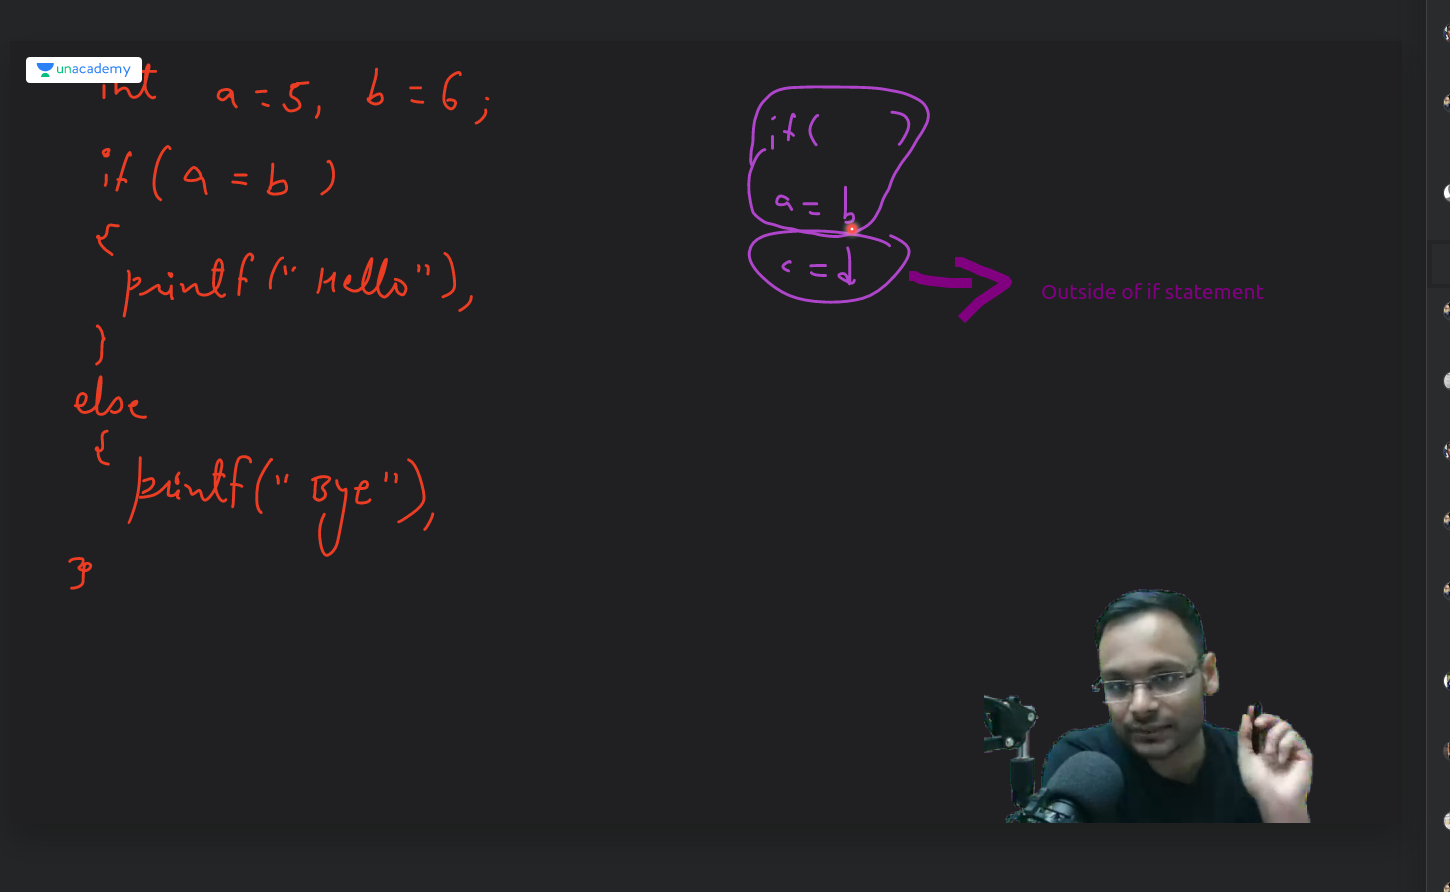 unacademy
int a = 5, b = 6 ;
if ( a = b )
{
printf (" Hello"),
}
else
{
printf (" Bye"),
}
if ( )
a = b
c = d
Outside of if statement